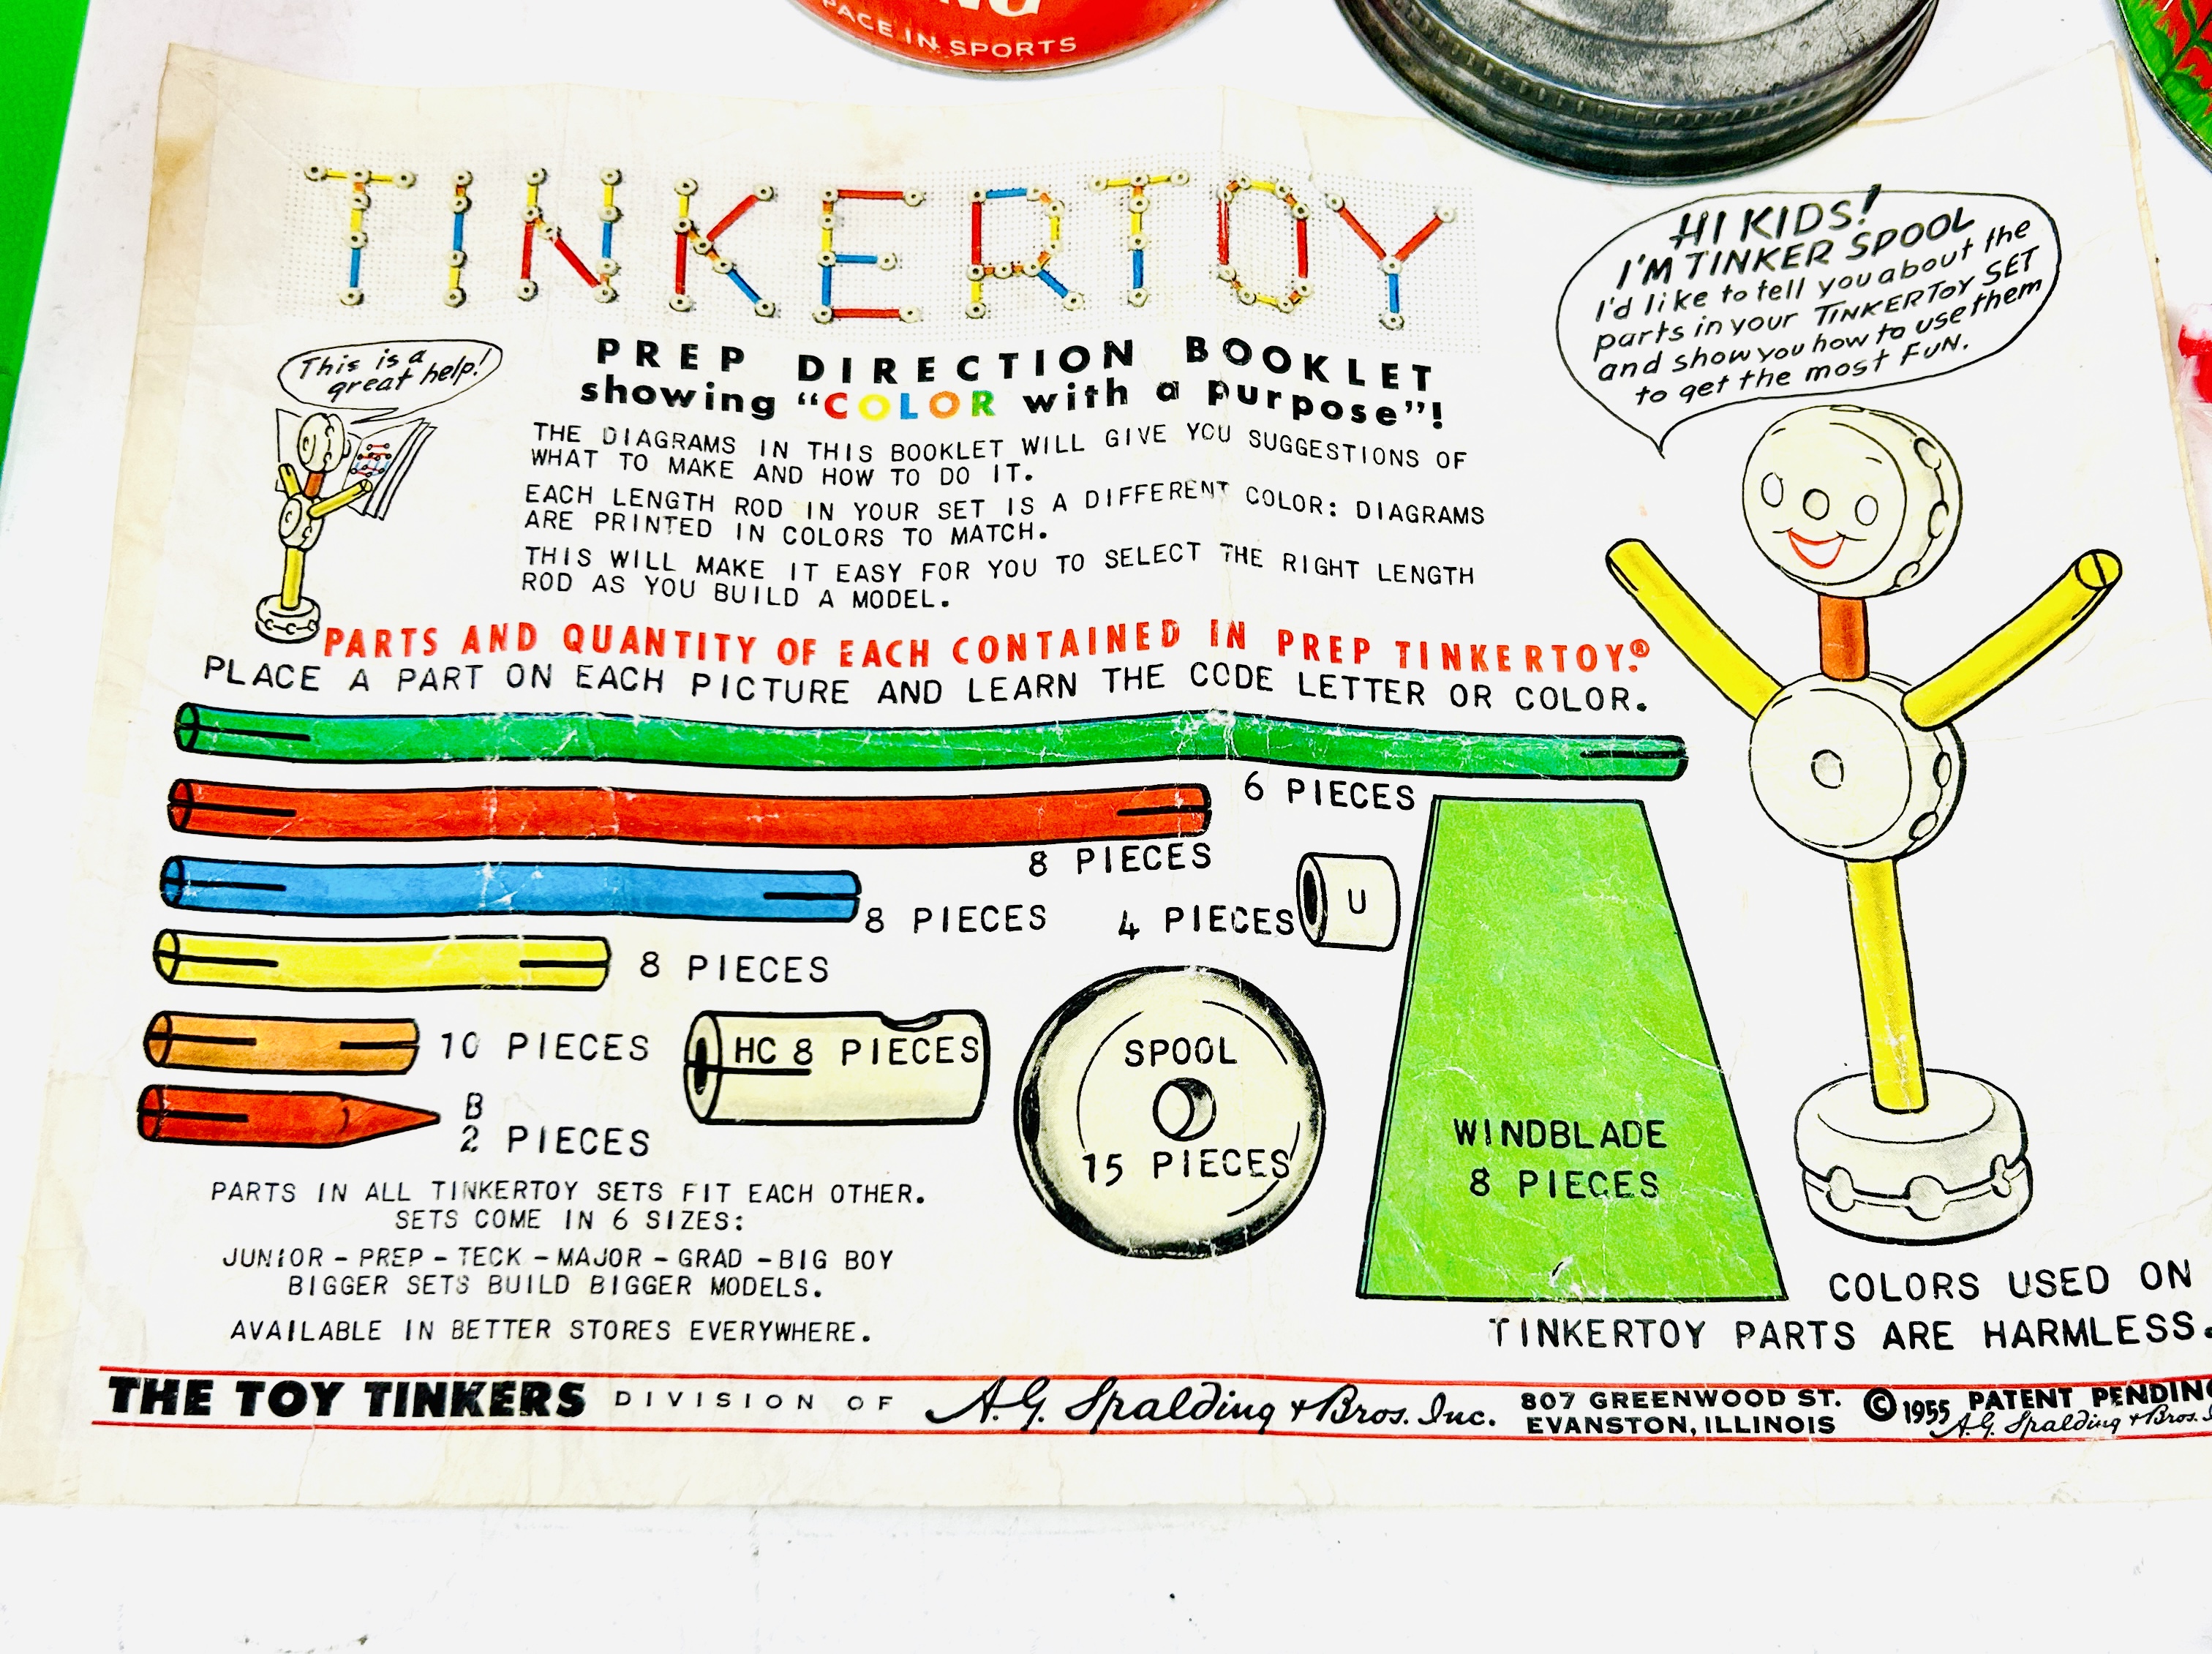 PACE IN SPORTS
TINKERTOY
PREP DIRECTION BOOKLET
showing "COLOR with a purpose"!
THE DIAGRAMS IN THIS BOOKLET WILL GIVE YOU SUGGESTIONS OF
WHAT TO MAKE AND HOW TO DO IT.
EACH LENGTH ROD IN YOUR SET IS A DIFFERENT COLOR: DIAGRAMS
ARE PRINTED IN COLORS TO MATCH.
THIS WILL MAKE IT EASY FOR YOU TO SELECT THE RIGHT LENGTH
ROD AS YOU BUILD A MODEL.
This is a
great help!
HI KIDS!
I'M TINKER SPOOL
I'd like to tell you about the
parts in your TINKERTOY SET
and show you how to use them
to get the most FUN.
PARTS AND QUANTITY OF EACH CONTAINED IN PREP TINKERTOY.®
PLACE A PART ON EACH PICTURE AND LEARN THE CODE LETTER OR COLOR.
6 PIECES
8 PIECES
8 PIECES
4 PIECES
U
8 PIECES
10 PIECES
HC 8 PIECES
B
2 PIECES
SPOOL
15 PIECES
WINDBLADE
8 PIECES
PARTS IN ALL TINKERTOY SETS FIT EACH OTHER.
SETS COME IN 6 SIZES:
JUNIOR - PREP - TECK - MAJOR - GRAD - BIG BOY
BIGGER SETS BUILD BIGGER MODELS.
AVAILABLE IN BETTER STORES EVERYWHERE.
COLORS USED ON
TINKERTOY PARTS ARE HARMLESS.
THE TOY TINKERS DIVISION OF A.G. Spalding & Bros. Inc.
807 GREENWOOD ST.
EVANSTON, ILLINOIS
© 1955 PATENT PENDING
A.G. Spalding & Bros.